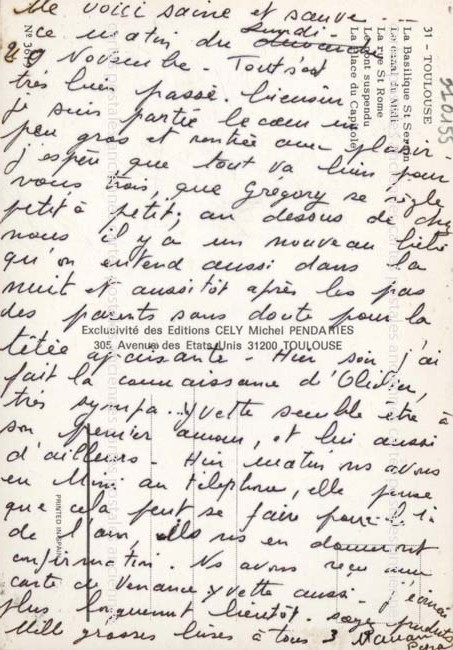 Me voici saine et sauve
ce matin du Lundi
29 Novembre. Tout s'est
très bien passé. bien sûr
je suis partie le cœur un
peu gros et rentrée avec plaisir.
j'espère que tout va bien pour
vous trois, que Grégory se règle
petit à petit; au dessous de chez
nous il y a un nouveau bébé
qu'on entend aussi dans la
nuit et aussitôt après les pas
des parents sans doute pour la
têtée apaisante - Hier soir j'ai
fait la connaissance d'Olivier,
très sympa. yvette semble être à
son premier amour, et lui aussi
d'ailleurs - Hier matin ns avons
eu Mimi au téléphone, elle pense
que cela peut se faire pour le 1er
de l'an, ils ns en donneront
confirmation. Ns avons reçu une
carte de Venance yvette aussi. j'écrirai
plus longuement bientôt. soyez prudents
Mille grosses bises à tous 3 Maman
Papa
31 - TOULOUSE
La Basilique St Sernin
Le canal du Midi
La rue St Rome
Le Pont suspendu
La Place du Capitole
Exclusivité des Editions CELY Michel PENDARIES
305, Avenue des Etats-Unis 31200 TOULOUSE
PRINTED IN SPAIN